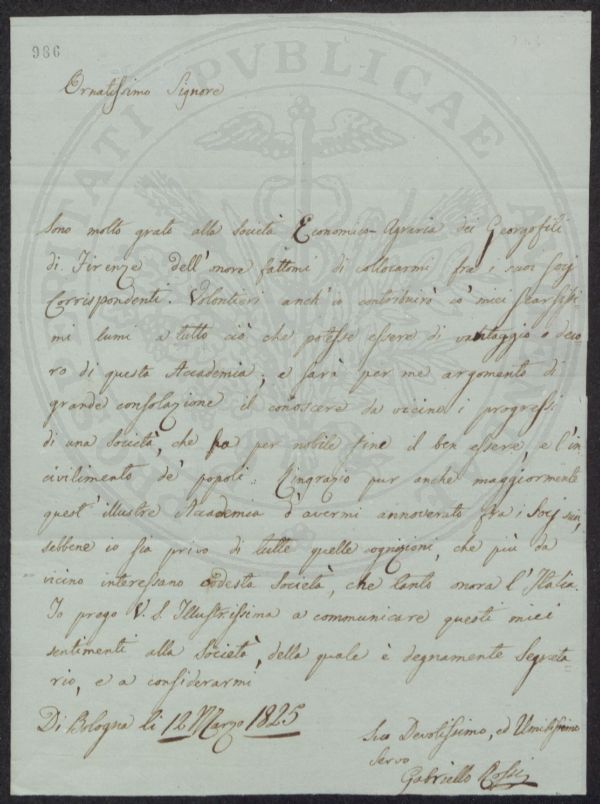 986
Ornatissimo Signore
Sono molto grato alla Società Economico-Agraria dei Georgofili
di Firenze dell'onore fattomi di collocarmi fra i suoi socj
Corrispondenti. Volontieri anch'io contribuirò co' miei scarsissi
mi lumi a tutto ciò che potesse essere di vantaggio o deco
ro di questa Accademia; e sarà per me argomento di
grande consolazione il conoscere da vicino i progressi
di una società, che ha per nobile fine il ben essere, e l'in
civilimento de' popoli. Ringrazio pur anche maggiormente
quest'illustre Accademia d'avermi annoverato fra i Socj suoi,
sebbene io sia privo di tutte quelle cognizioni, che più da
vicino interessano codesta Società, che tanto onora l'Italia.
Io prego V. S. Illustrissima a communicare questi miei
sentimenti alla Società, della quale è degnamente Segreta
rio, e a considerarmi
Di Bologna li 12 Marzo 1825
Suo Devotissimo, ed Umilissimo
Servo
Gabriello Rossi
PROSPERITATI PUBLICAE AUGENDAE